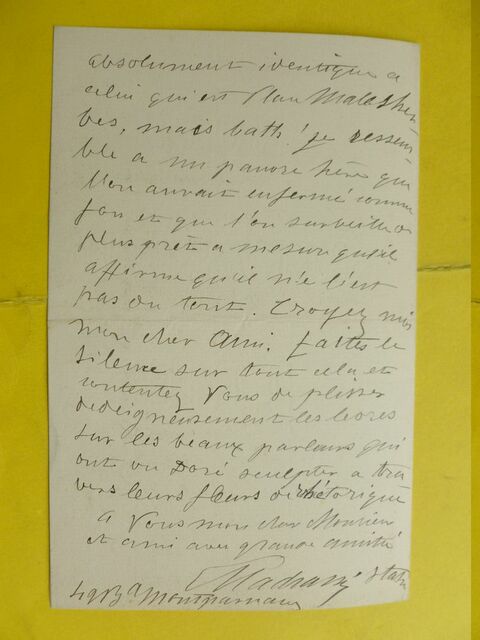 absolument identique a
celui qui est Place Malesher
bes, mais bath! je ressem
ble a un pauvre hère que
l'on aurait enfermé comme
fou et que l'on surveille de
plus près a mesure qu'il
affirme qu'il n'e l'est
pas du tout. Croyez moi
mon cher Ami. faites le
silence sur tout cela et
contentez vous de plisser
dedeigneusement les levres
sur les beaux parleurs qui
ont vu Doré sculpter a tra
vers leurs fleurs de rhétorique
a Vous mon cher Monsieur
et ami avec grande amitié
49 Bd Montparnasse